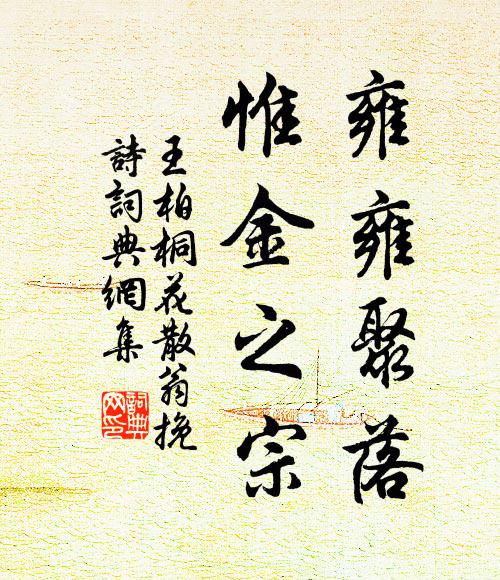 雍雍聚落
惟金之宗
王柏桐花散翁挽
詩詞典網集
詞典网印